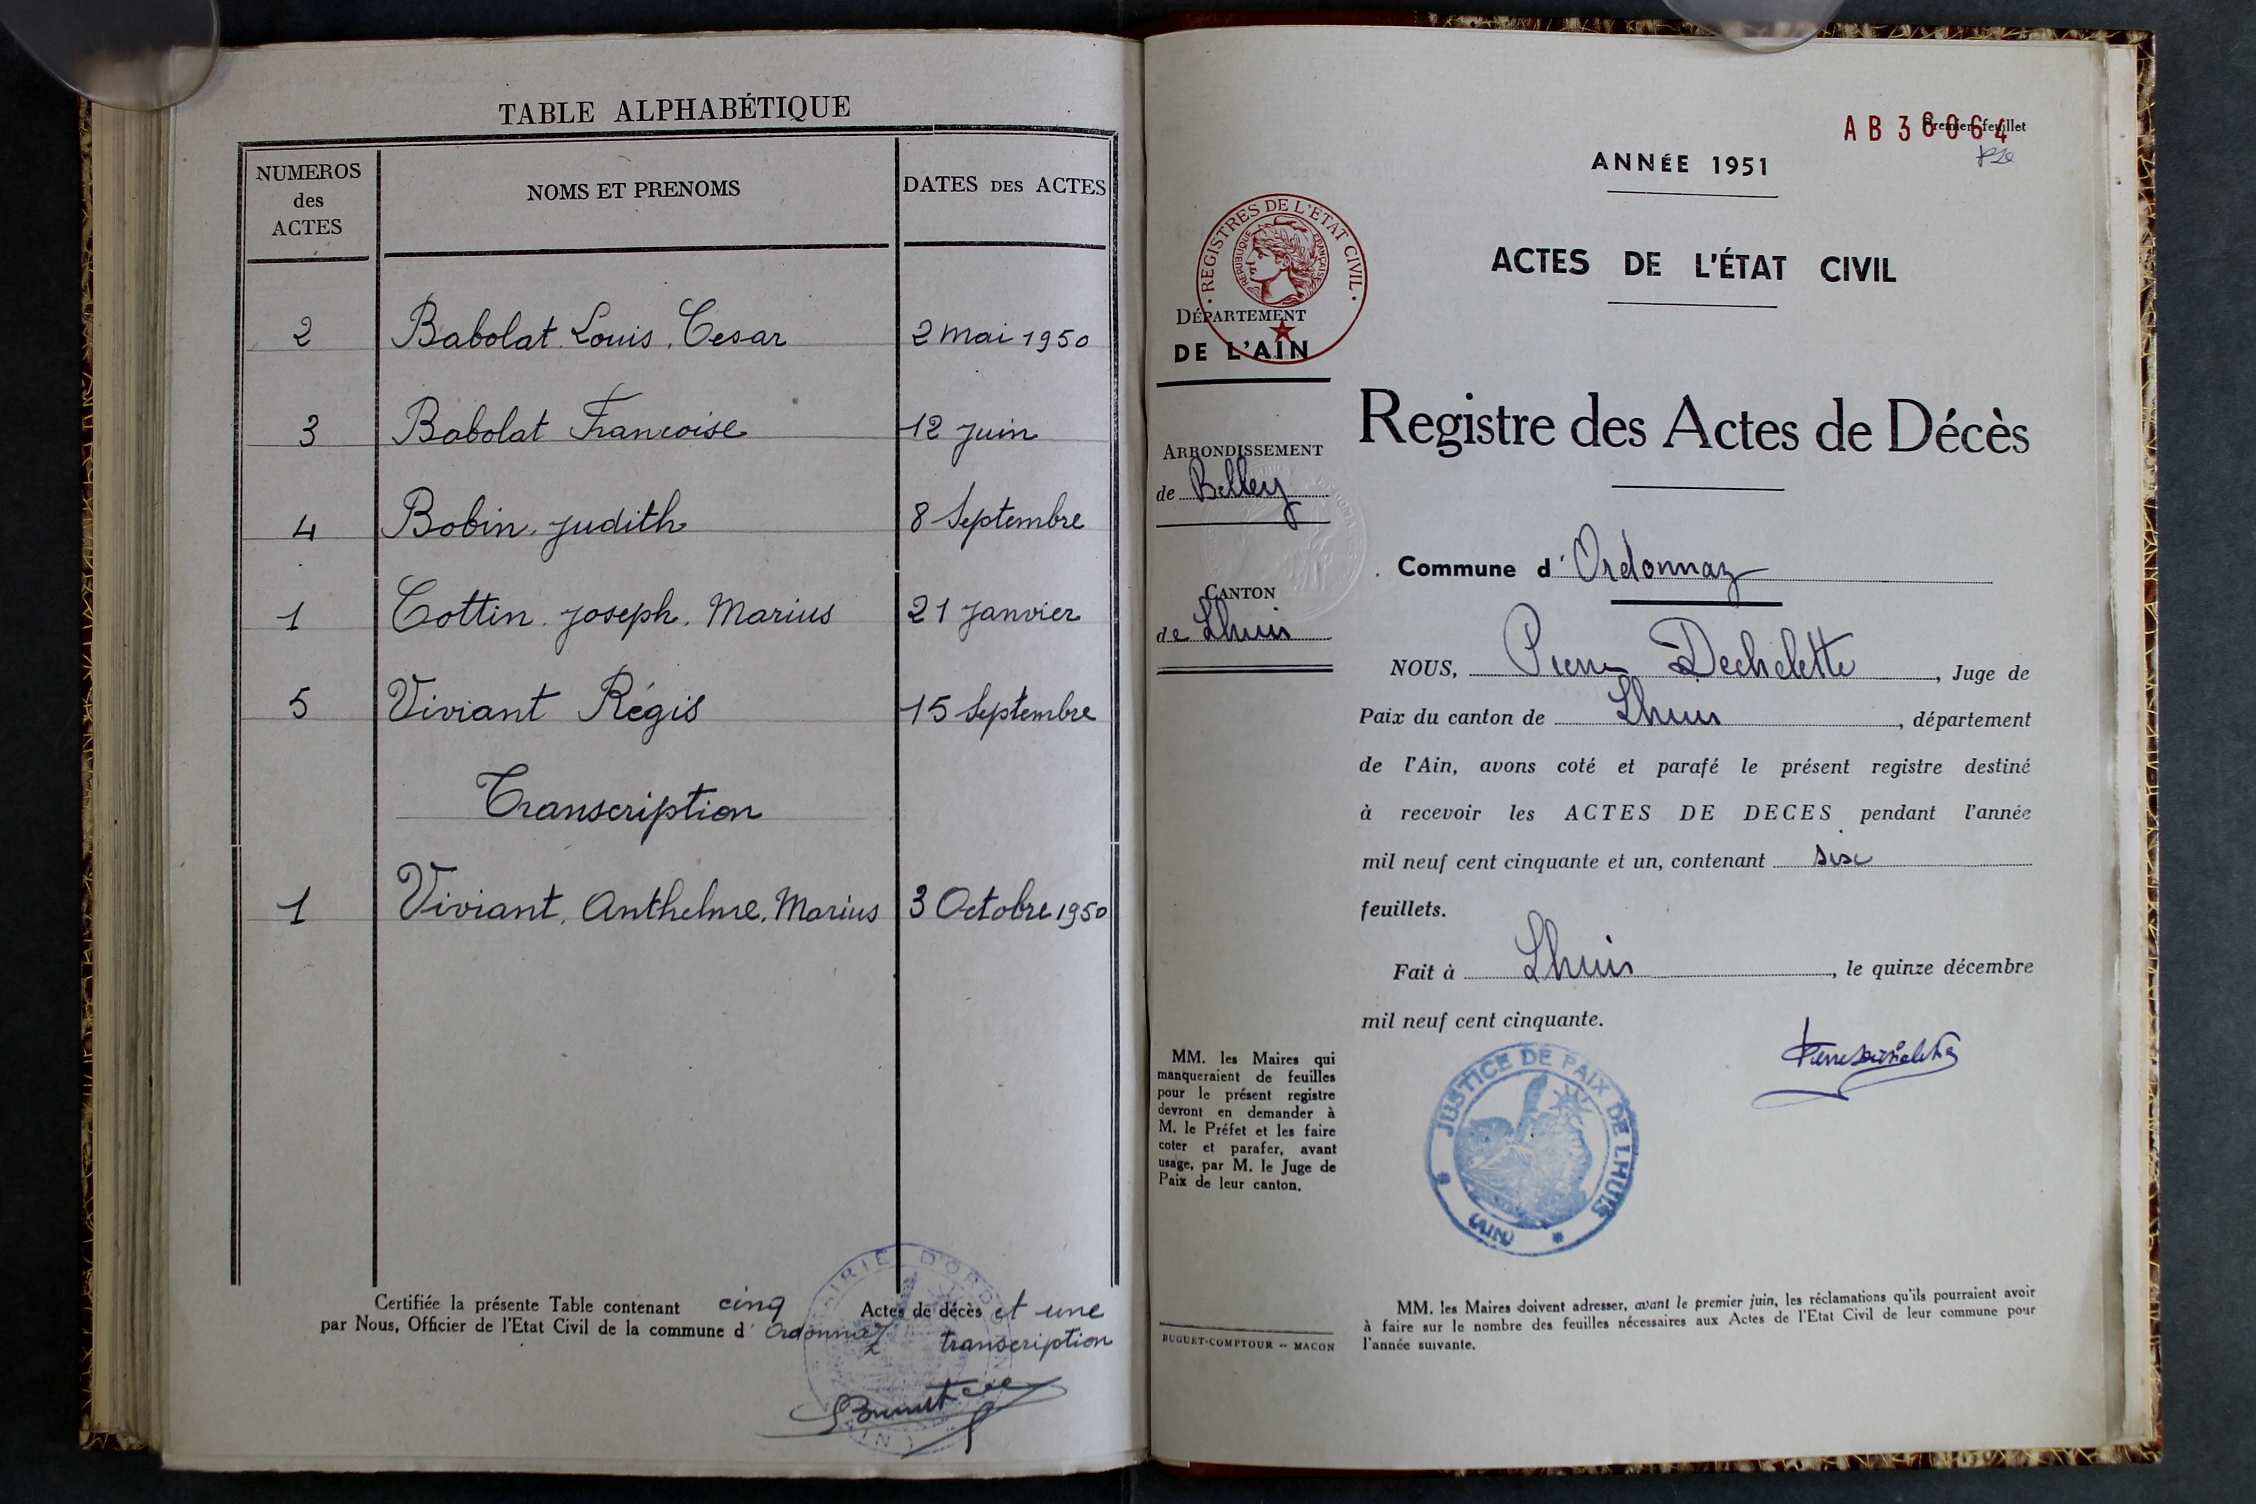 TABLE ALPHABÉTIQUE
NUMEROS des ACTES NOMS ET PRENOMS DATES DES ACTES
2 Babolat Louis, Cesar 2 mai 1950
3 Babolat Francoise 12 juin
4 Bobin, Judith 8 Septembre
1 Cottin Joseph, Marius 21 Janvier
5 Viviant Régis 15 Septembre
Transcription
1 Viviant, Anthelme, Marius 3 Octobre 1950
Certifiée la présente Table contenant cinq Actes de décès et une
par Nous, Officier de l'Etat Civil de la commune d'Ordonnaz transcription
MAIRIE D'ORDON
AIN
AB 36064
Premier feuillet
ANNÉE 1951
ACTES DE L'ÉTAT CIVIL
· REGISTRES DE L'ÉTAT CIVIL ·
RÉPUBLIQUE FRANÇAISE
DÉPARTEMENT
DE L'AIN
Registre des Actes de Décès
ARRONDISSEMENT
de Belley
Commune d'Ordonnaz
CANTON
de Lhuis
NOUS, Pierre Dechelette, Juge de
Paix du canton de Lhuis, département
de l'Ain, avons coté et parafé le présent registre destiné
à recevoir les ACTES DE DECES pendant l'année
mil neuf cent cinquante et un, contenant six
feuillets.
Fait à Lhuis, le quinze décembre
mil neuf cent cinquante.
Pierre Dechelette
JUSTICE DE PAIX DE LHUIS
(AIN)
MM. les Maires qui
manqueraient de feuilles
pour le présent registre
devront en demander à
M. le Préfet et les faire
coter et parafer, avant
usage, par M. le Juge de
Paix de leur canton.
MM. les Maires doivent adresser, avant le premier juin, les réclamations qu'ils pourraient avoir
à faire sur le nombre des feuilles nécessaires aux Actes de l'Etat Civil de leur commune pour
l'année suivante.
BUGUET-COMPTOUR -- MACON